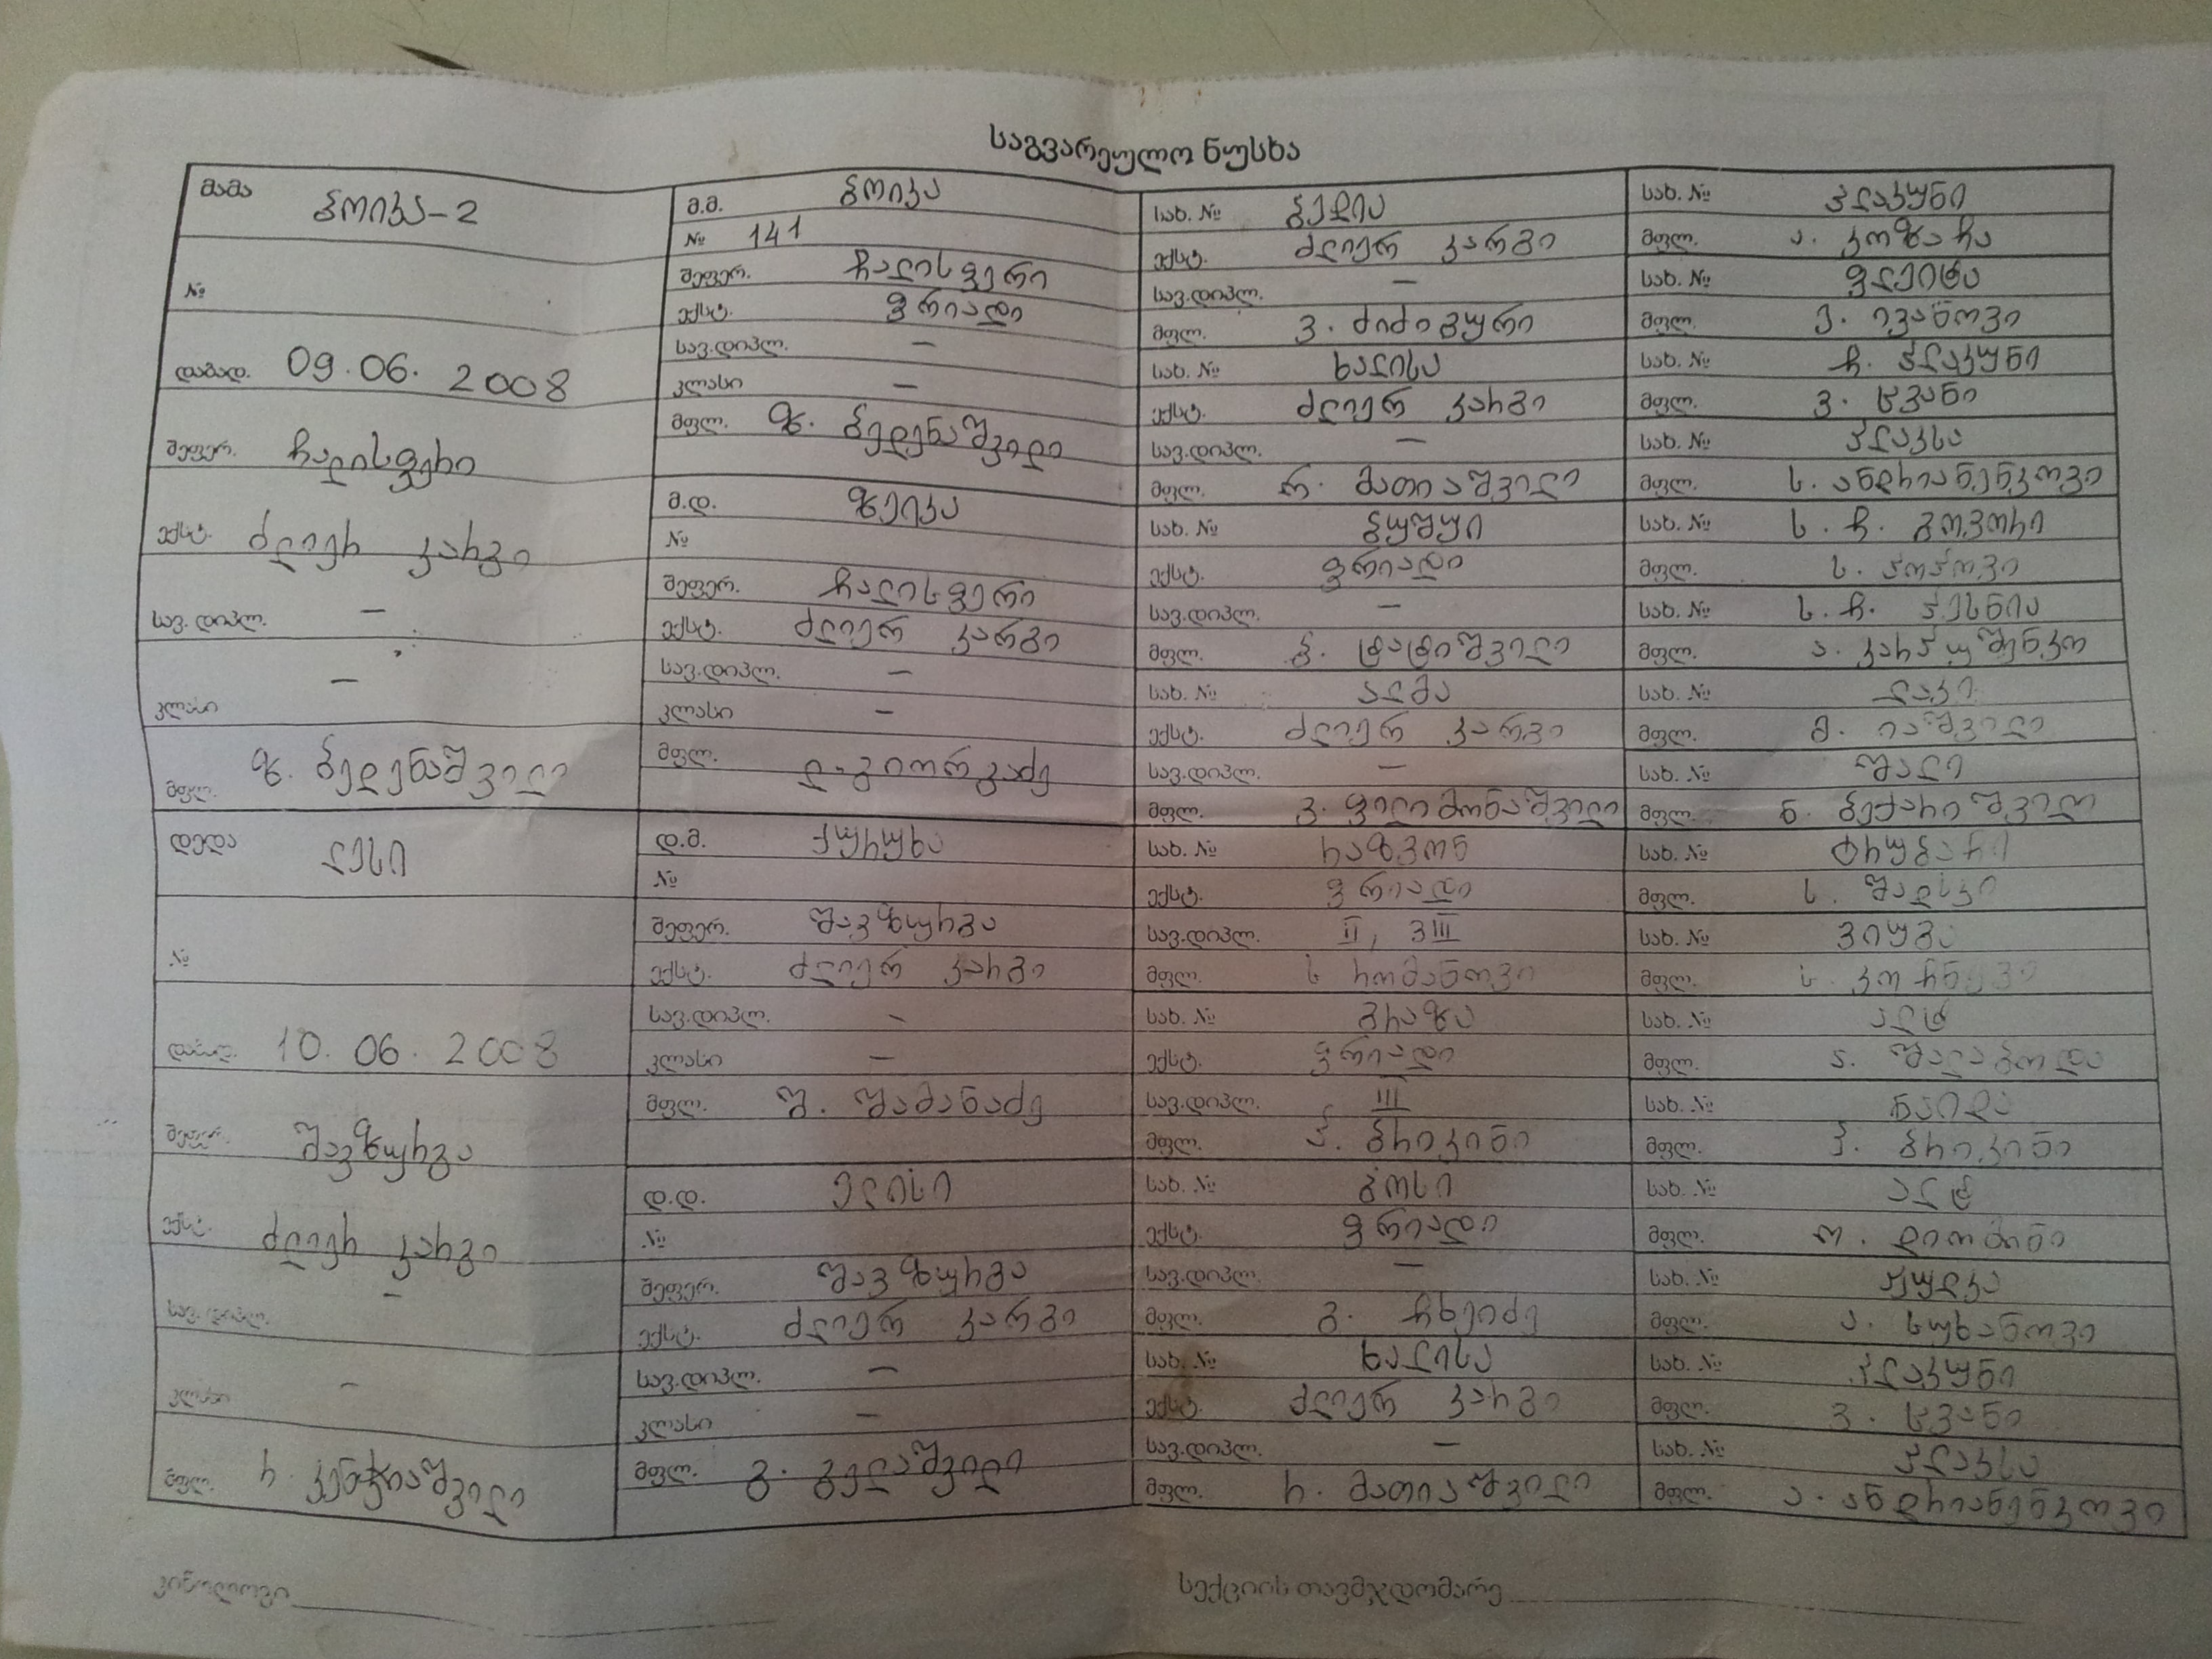 საგვარეულო ნუსხა
მამა ბოიკა-2
№
დაბად. 09.06.2008
შეფერ. ჩალისფერი
ექსტ. ძლიერ კარგი
სავ.დიპლ. —
კლასი —
მფლ. ზ. ბედენაშვილი
დედა ლესი
№
დაბად. 10.06.2008
შეფერ. შავზურგა
ექსტ. ძლიერ კარგი
სავ.დიპლ. —
კლასი —
მფლ. რ. კენჭიაშვილი
მ.მ. ბოიკა
№ 141
შეფერ. ჩალისფერი
ექსტ. ფრიადი
სავ.დიპლ. —
კლასი —
მფლ. ზ. ბედენაშვილი
მ.დ. ზეიკა
№
შეფერ. ჩალისფერი
ექსტ. ძლიერ კარგი
სავ.დიპლ. —
კლასი —
მფლ. ლ. გიორგაძე
დ.მ. ქურუხა
№
შეფერ. შავზურგა
ექსტ. ძლიერ კარგი
სავ.დიპლ. —
კლასი —
მფლ. შ. შამანაძე
დ.დ. ელისი
№
შეფერ. შავზურგა
ექსტ. ძლიერ კარგი
სავ.დიპლ. —
კლასი —
მფლ. გ. გელაშვილი
სახ. № ბელია
ექსტ. ძლიერ კარგი
სავ.დიპლ. —
მფლ. ვ. ძიძიგური
სახ. № ხალისა
ექსტ. ძლიერ კარგი
სავ.დიპლ. —
მფლ. რ. მათიაშვილი
სახ. № ბუშუი
ექსტ. ფრიადი
სავ.დიპლ. —
მფლ. ბ. ტატიშვილი
სახ. № ალმა
ექსტ. ძლიერ კარგი
სავ.დიპლ. —
მფლ. ვ. ფილიმონაშვილი
სახ. № რაზგონ
ექსტ. ფრიადი
სავ.დიპლ. II, ვIII
მფლ. ს რომანოვი
სახ. № გრაზა
ექსტ. ფრიადი
სავ.დიპლ. III
მფლ. პ. ბრიკინი
სახ. № ბოსი
ექსტ. ფრიადი
სავ.დიპლ. —
მფლ. გ. ჩხეიძე
სახ. № ხალისა
ექსტ. ძლიერ კარგი
სავ.დიპლ. —
მფლ. რ. მათიაშვილი
სახ. № პლაკუნი
მფლ. ა. კოზარა
სახ. № ფლეიტა
მფლ. ე. ივანოვი
სახ. № ჩ. პლაკუნი
მფლ. ვ. სვანი
სახ. № პლაკსა
მფლ. ს. ანდრიანენკოვი
სახ. № ს. ჩ. გოვორი
მფლ. ს. პოპოვი
სახ. № ს. ჩ. პესნია
მფლ. ა. კარპუშენკო
სახ. № ლაკი
მფლ. მ. იაშვილი
სახ. № შალი
მფლ. ნ. ბექარიშვილ
სახ. № ტრუბარი
მფლ. ს. შალსკი
სახ. № ვიუგა
მფლ. ს.
სახ. № ალტ
მფლ. ა. შალაბოდა
სახ. № ნაიდა
მფლ. პ. ბრიკინი
სახ. № ალტ
მფლ. ო. დიომინი
სახ. № ჟულკა
მფლ. ა. სუხანოვი
სახ. № პლაკუნი
მფლ. ვ. სვანი
სახ. № პლაკსა
მფლ. ა. ანდრიანენკოვი
კინოლოგი
სექციის თავმჯდომარე